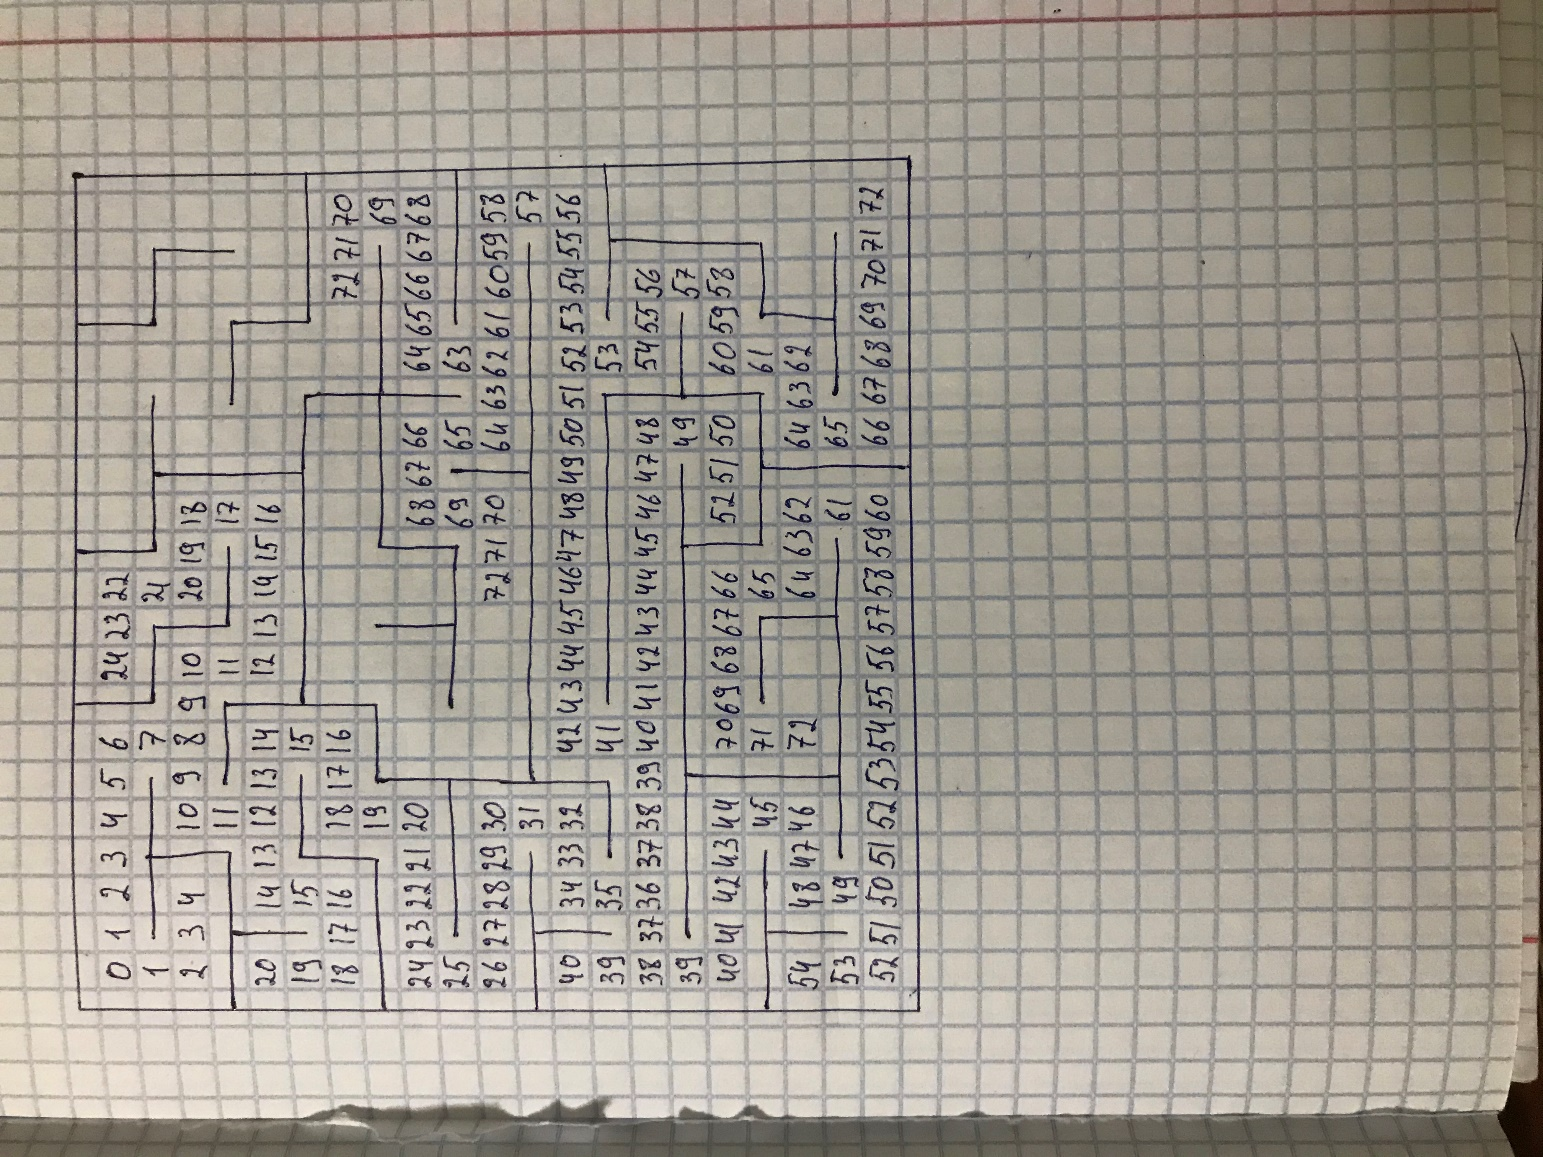 0 1 2 3 4 5 6 24 23 22
1 7 21
2 3 4 10 9 8 9 10 20 19 18
11 11 17
20 14 13 12 13 14 12 13 14 15 16
19 15 15
18 17 16 18 17 16 72 71 70
19 69
24 23 22 21 20 68 67 66 64 65 66 67 68
25 69 65 63
26 27 28 29 30 72 71 70 64 63 62 61 60 59 58
31 57
40 34 33 32 42 43 44 45 46 47 48 49 50 51 52 53 54 55 56
39 35 41 53
38 37 36 37 38 39 40 41 42 43 44 45 46 47 48 54 55 56
39 49 57
40 41 42 43 44 70 69 68 67 66 52 51 50 60 59 58
45 71 65 61
54 48 47 46 72 64 63 62 64 63 62
53 49 61 65
52 51 50 51 52 53 54 55 56 57 58 59 60 66 67 68 69 70 71 72